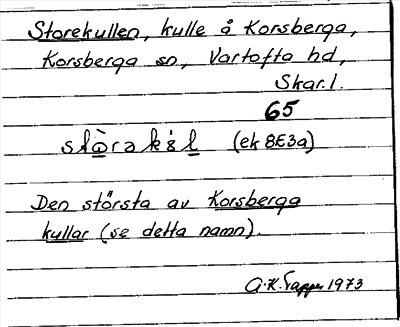 Storekullen, kulle å Korsberga,
Korsberga sn, Vartofta hd,
Skar. l.
65
(ek 8E3a)
Den största av Korsberga
kullar (se detta namn).
1973